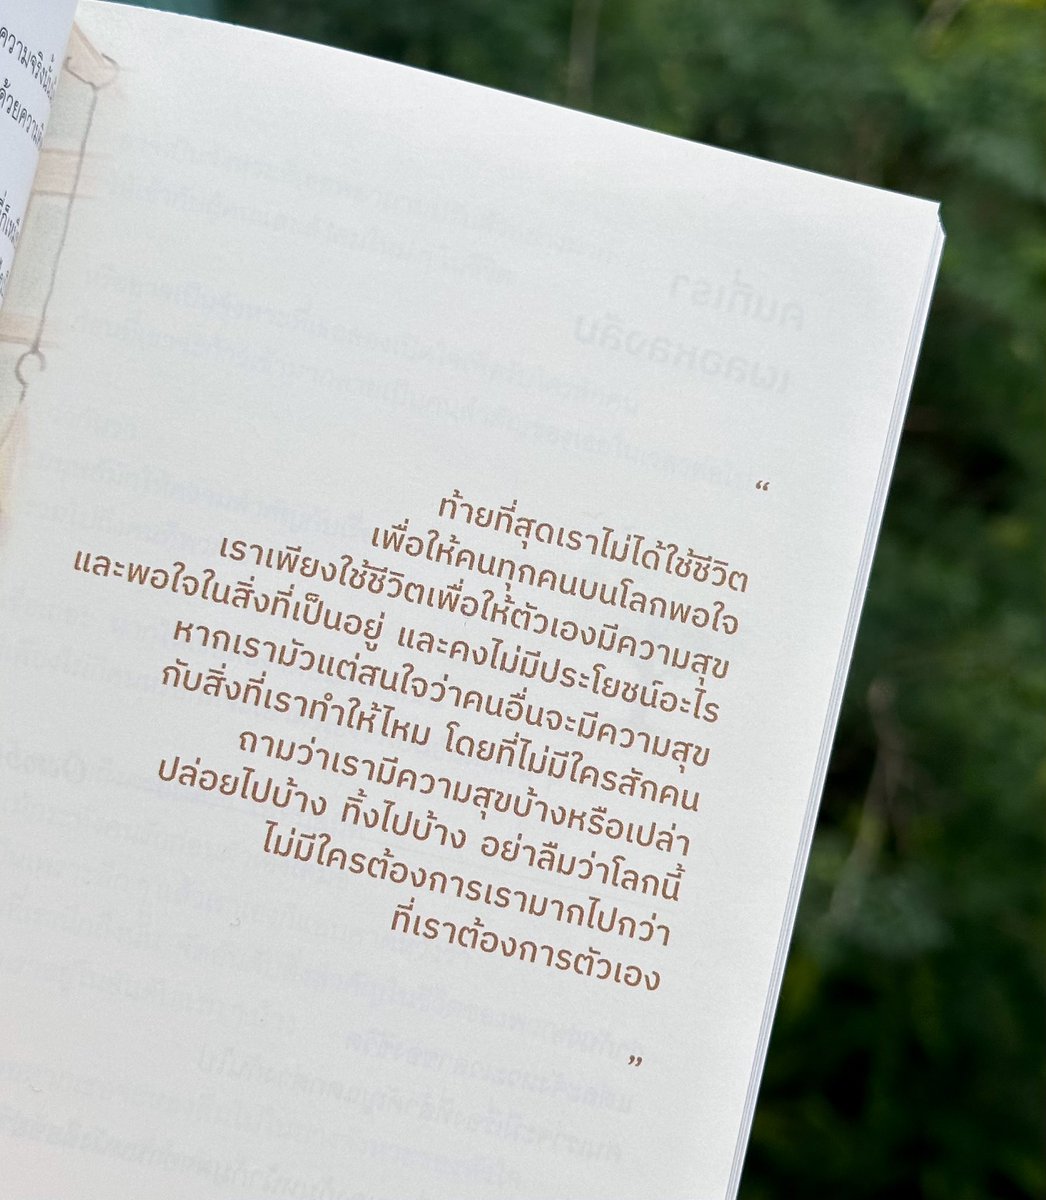 ความจริงนั้น
ด้วยความ
“
ท้ายที่สุดเราไม่ได้ใช้ชีวิต
เพื่อให้คนทุกคนบนโลกพอใจ
เราเพียงใช้ชีวิตเพื่อให้ตัวเองมีความสุข
และพอใจในสิ่งที่เป็นอยู่ และคงไม่มีประโยชน์อะไร
หากเรามัวแต่สนใจว่าคนอื่นจะมีความสุข
กับสิ่งที่เราทำให้ไหม โดยที่ไม่มีใครสักคน
ถามว่าเรามีความสุขบ้างหรือเปล่า
ปล่อยไปบ้าง ทิ้งไปบ้าง อย่าลืมว่าโลกนี้
ไม่มีใครต้องการเรามากไปกว่า
ที่เราต้องการตัวเอง
”